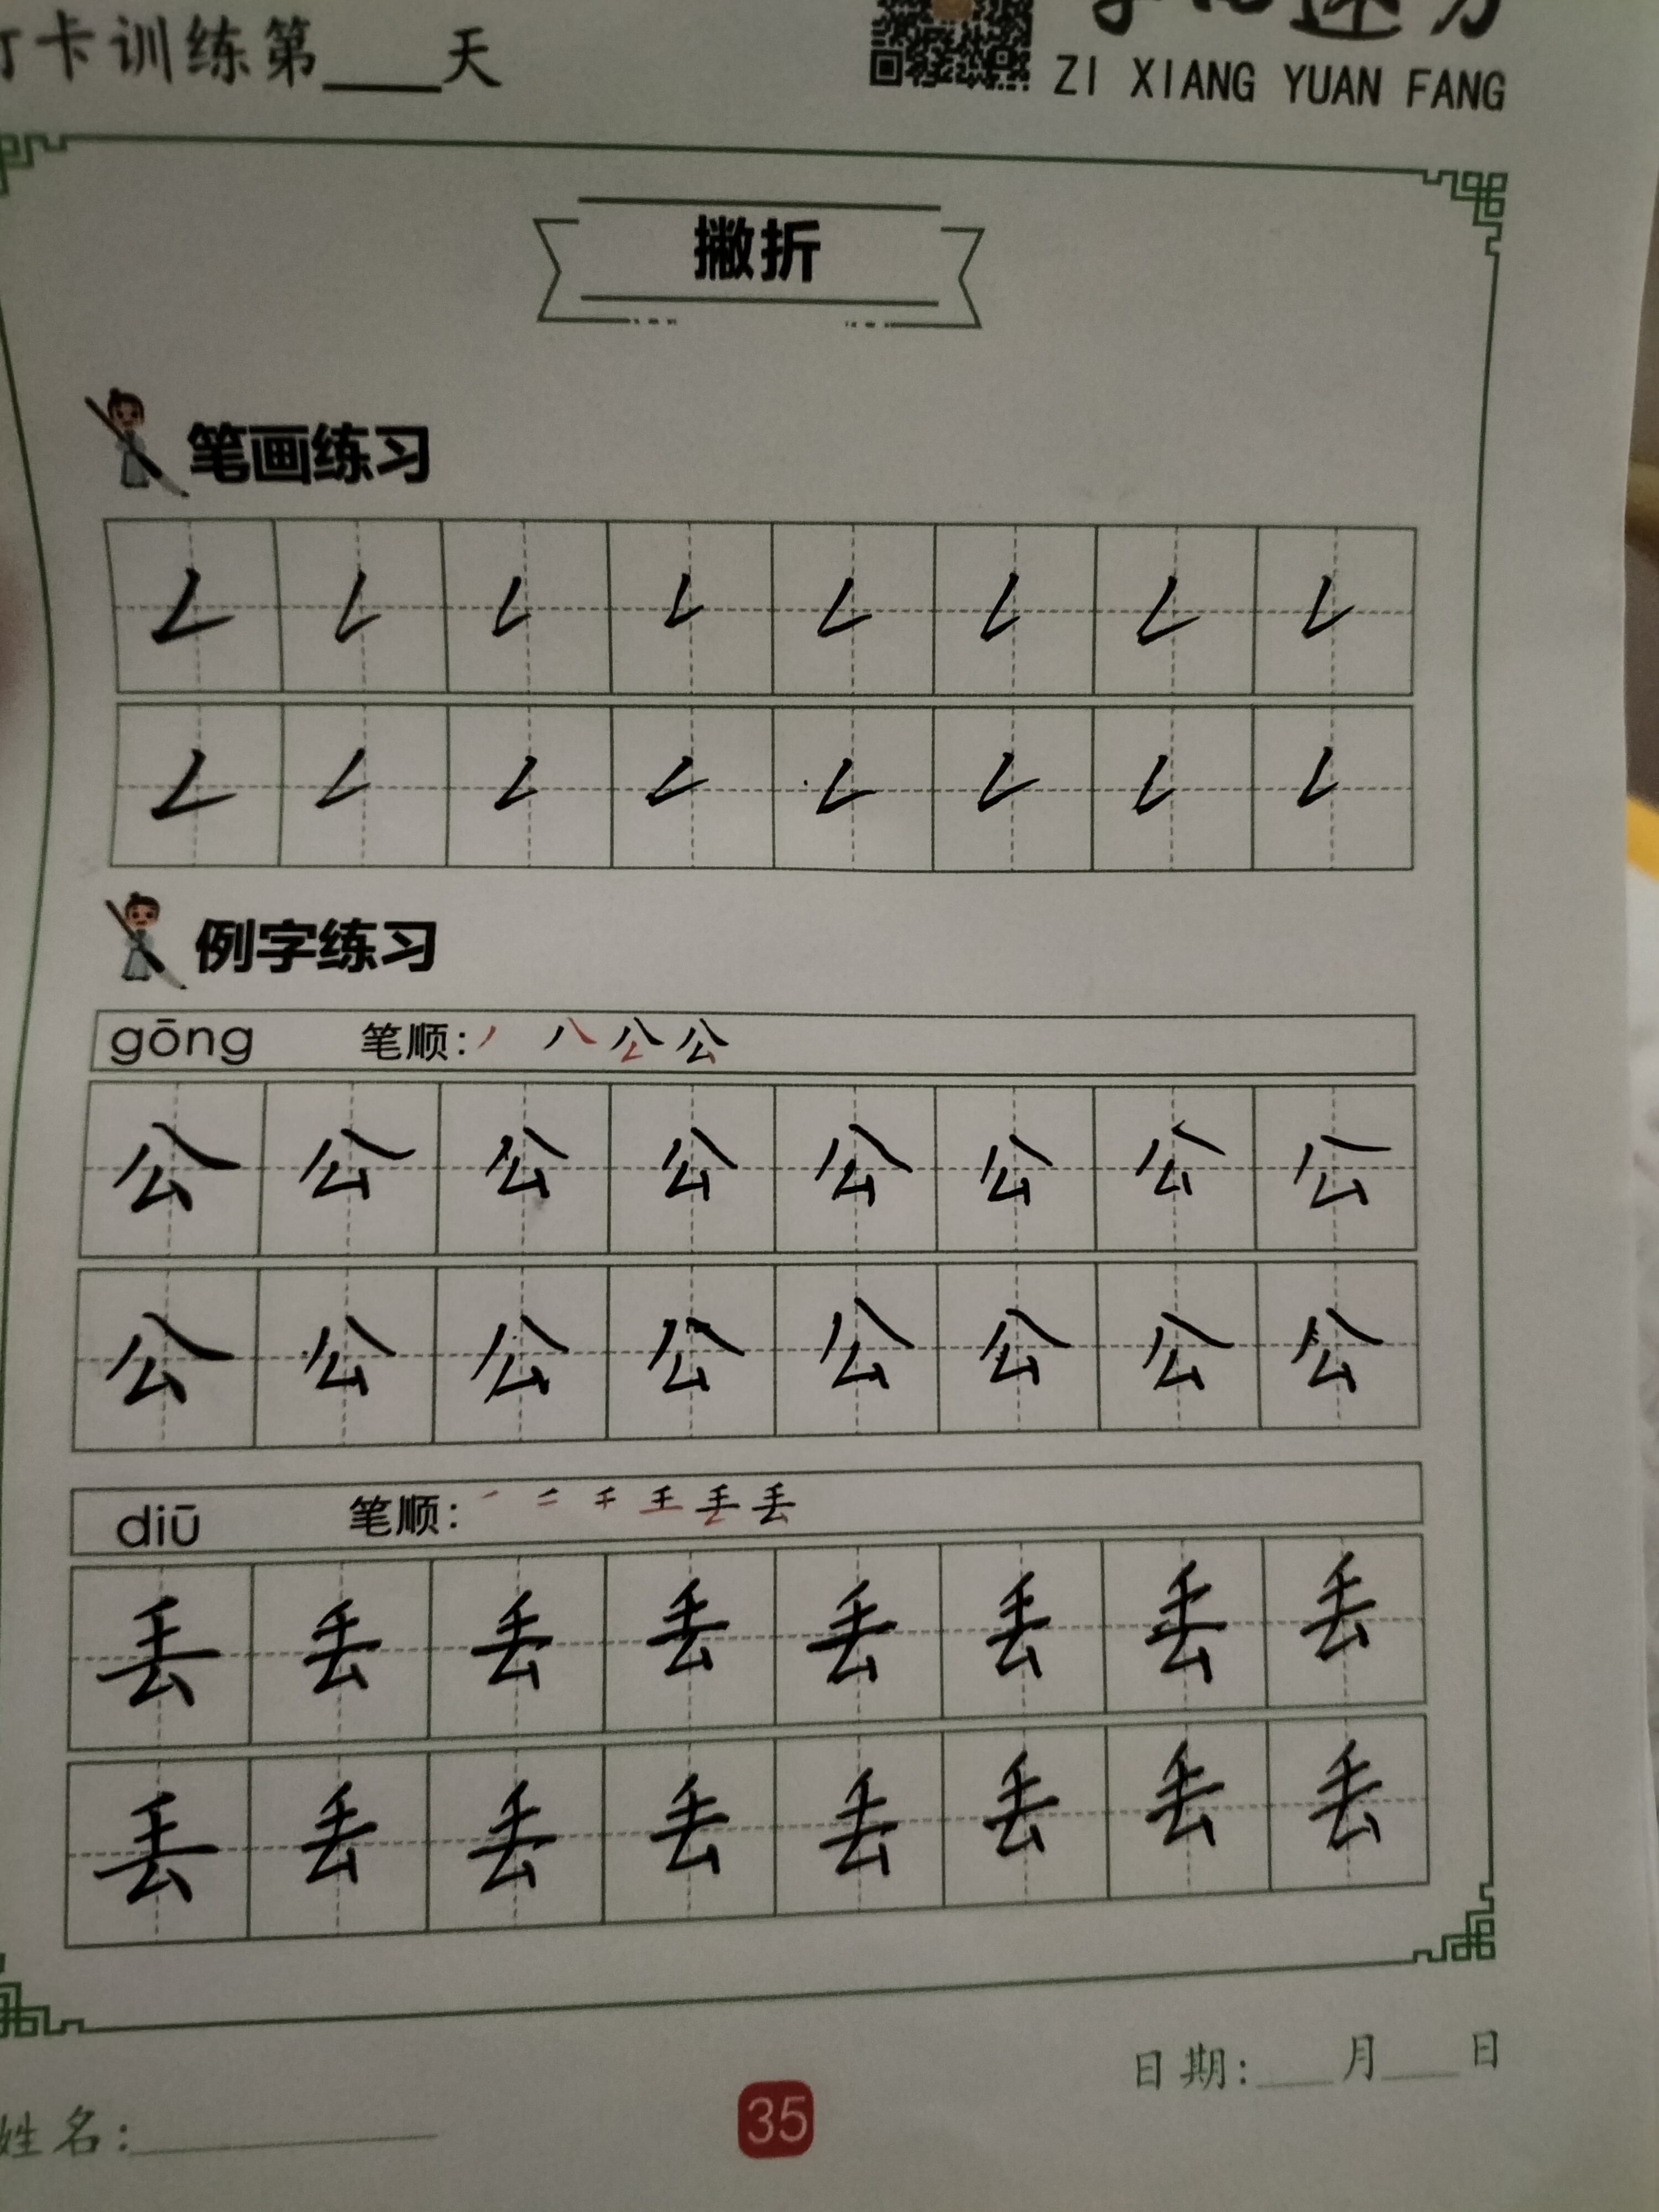 卡训练第___天
ZI XIANG YUAN FANG
撇折
笔画练习
𠃋 𠃋 𠃋 𠃋 𠃋 𠃋 𠃋 𠃋
𠃋 𠃋 𠃋 𠃋 𠃋 𠃋 𠃋 𠃋
例字练习
gōng 笔顺: 丿 八 公 公
公 公 公 公 公 公 公 公
公 公 公 公 公 公 公 公
diū 笔顺: 丢 丢
丢 丢 丢 丢 丢 丢 丢 丢
丢 丢 丢 丢 丢 丢 丢 丢
日期:___月___日
姓名:___
35